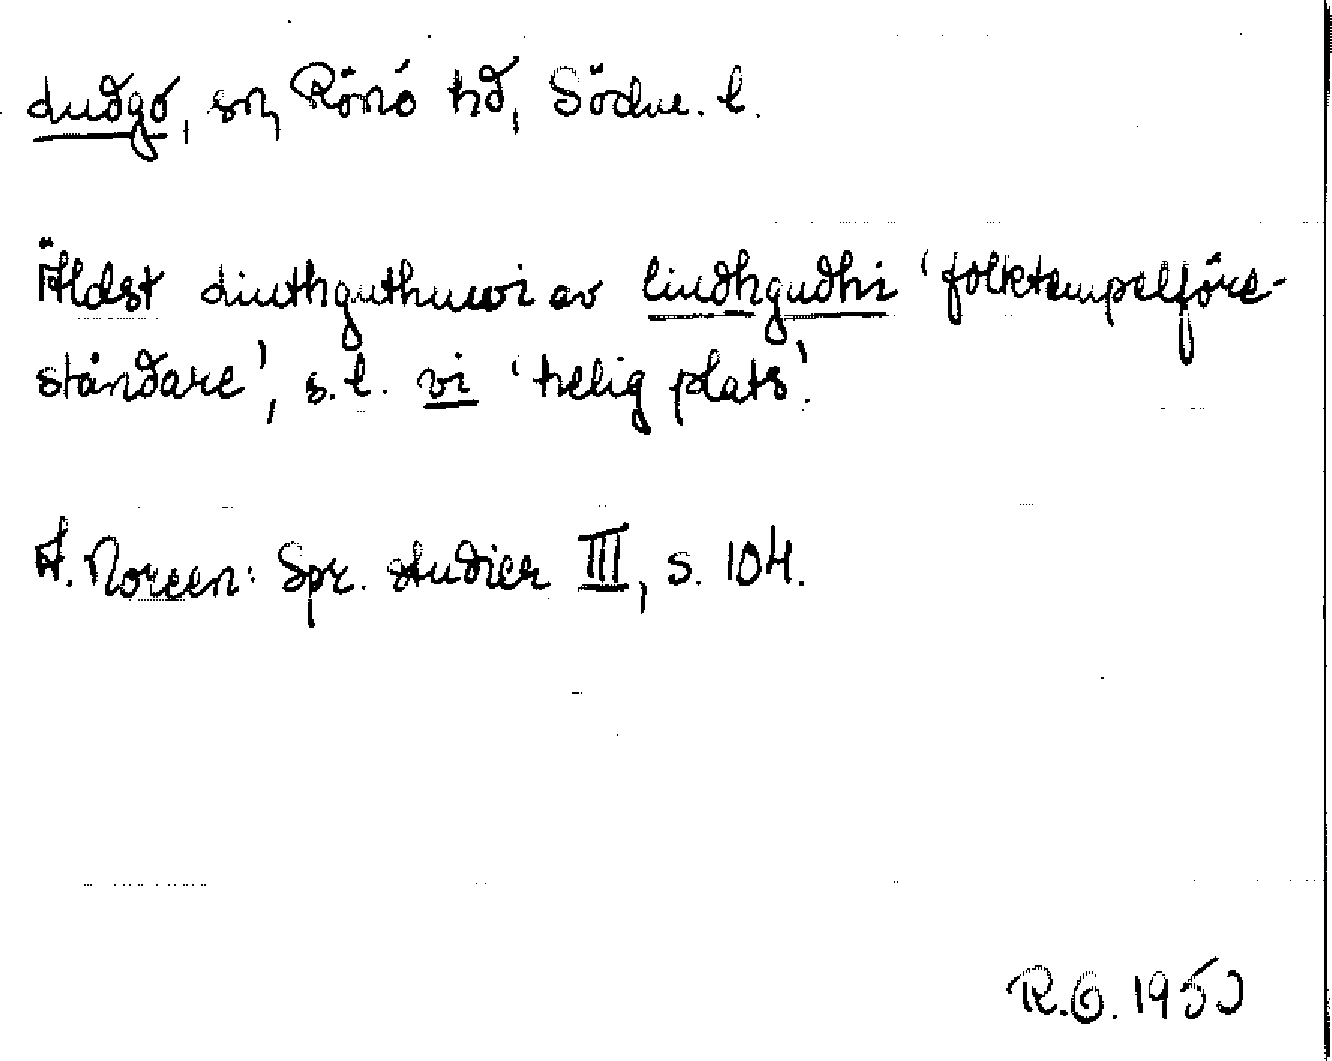 Ludgo, sn, Rönö hd, Södm. l.
Äldst Liuthguthuwi av liudhgudhi 'folktempelföre-
ståndare', s.l. vi 'helig plats'.
A. Noreen: Spr. studier III, s. 104.
R.O. 1950